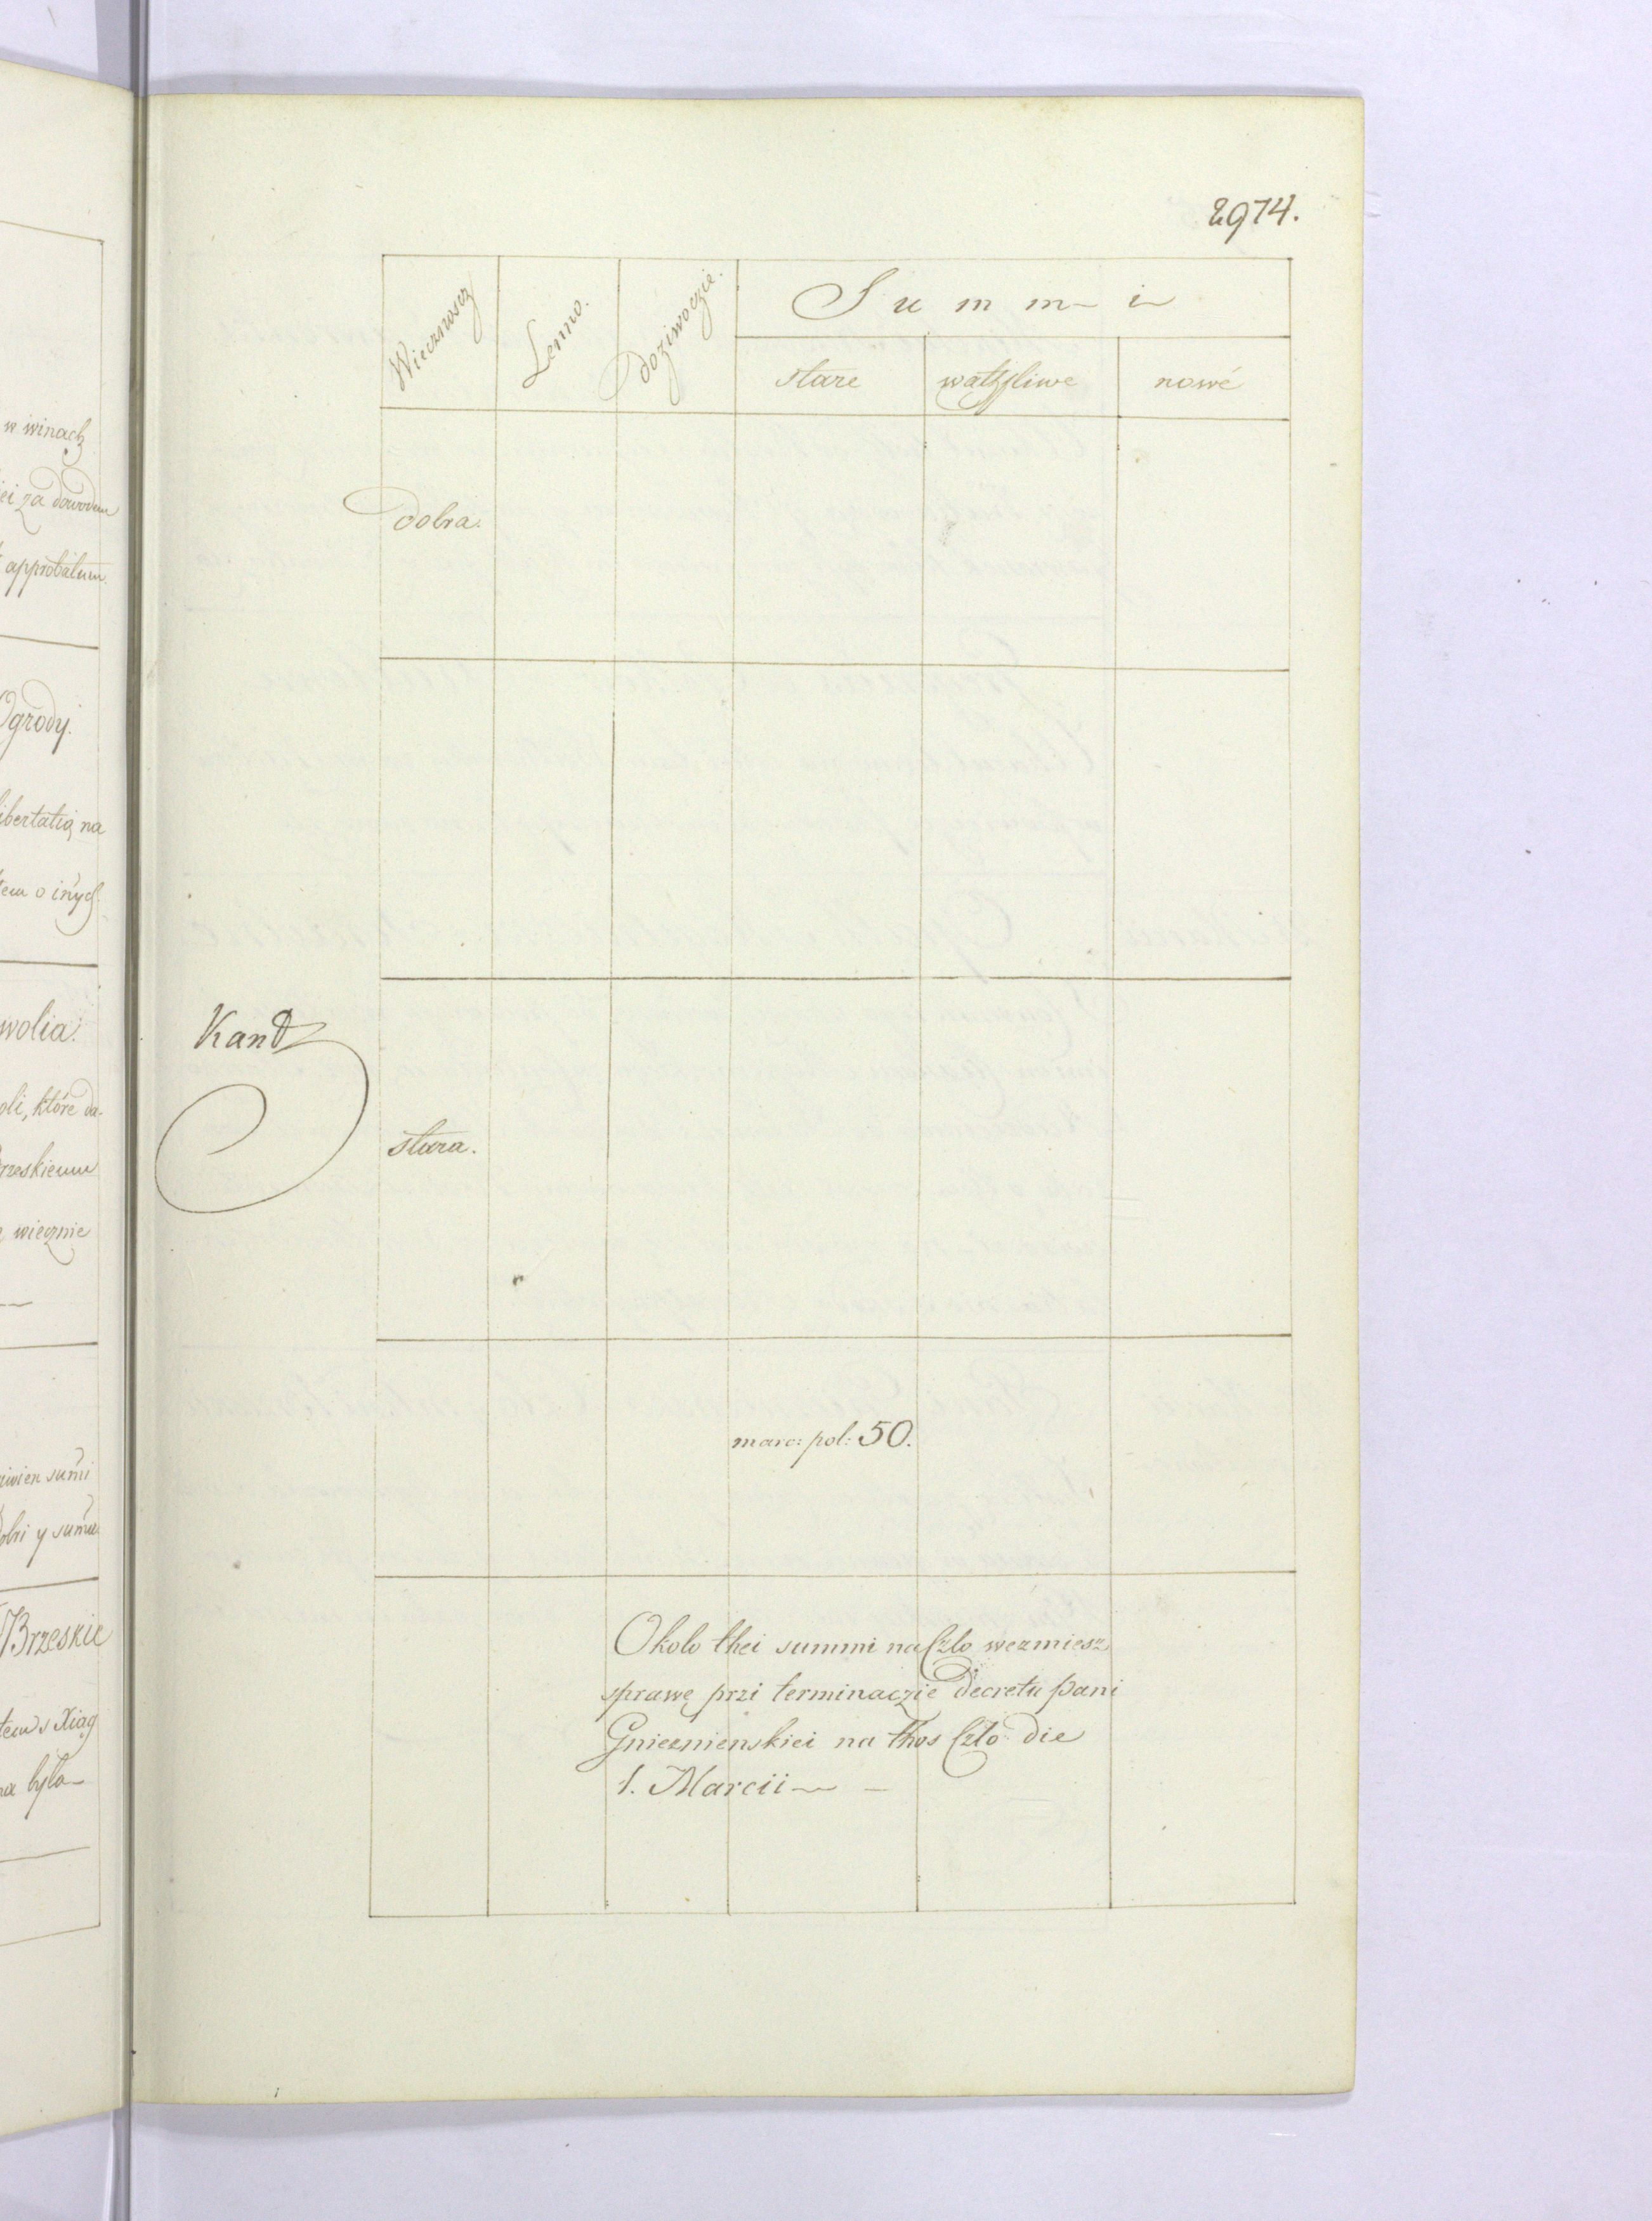 w winach
ei za dowodem
approbatum.
Ogrody.
libertatią na
tem o inych
wolia.
oli, które da-
rzeskiemu
wiecznie
sumi
dobri y suma
Brzeskie
tem s Xiąg
na była
2974.
Wiecznoscz
Lenno.
Dożiwoczie.
Summi
stare
wątpliwe
nowé
dobra.
Kand
stara.
marc: pol: 50.
Okolo thei summi na Czlo wezmiesz
sprawę przi terminaczie Decretu pani
Gnieznienskiei na thos Czlo die
1. Marcii